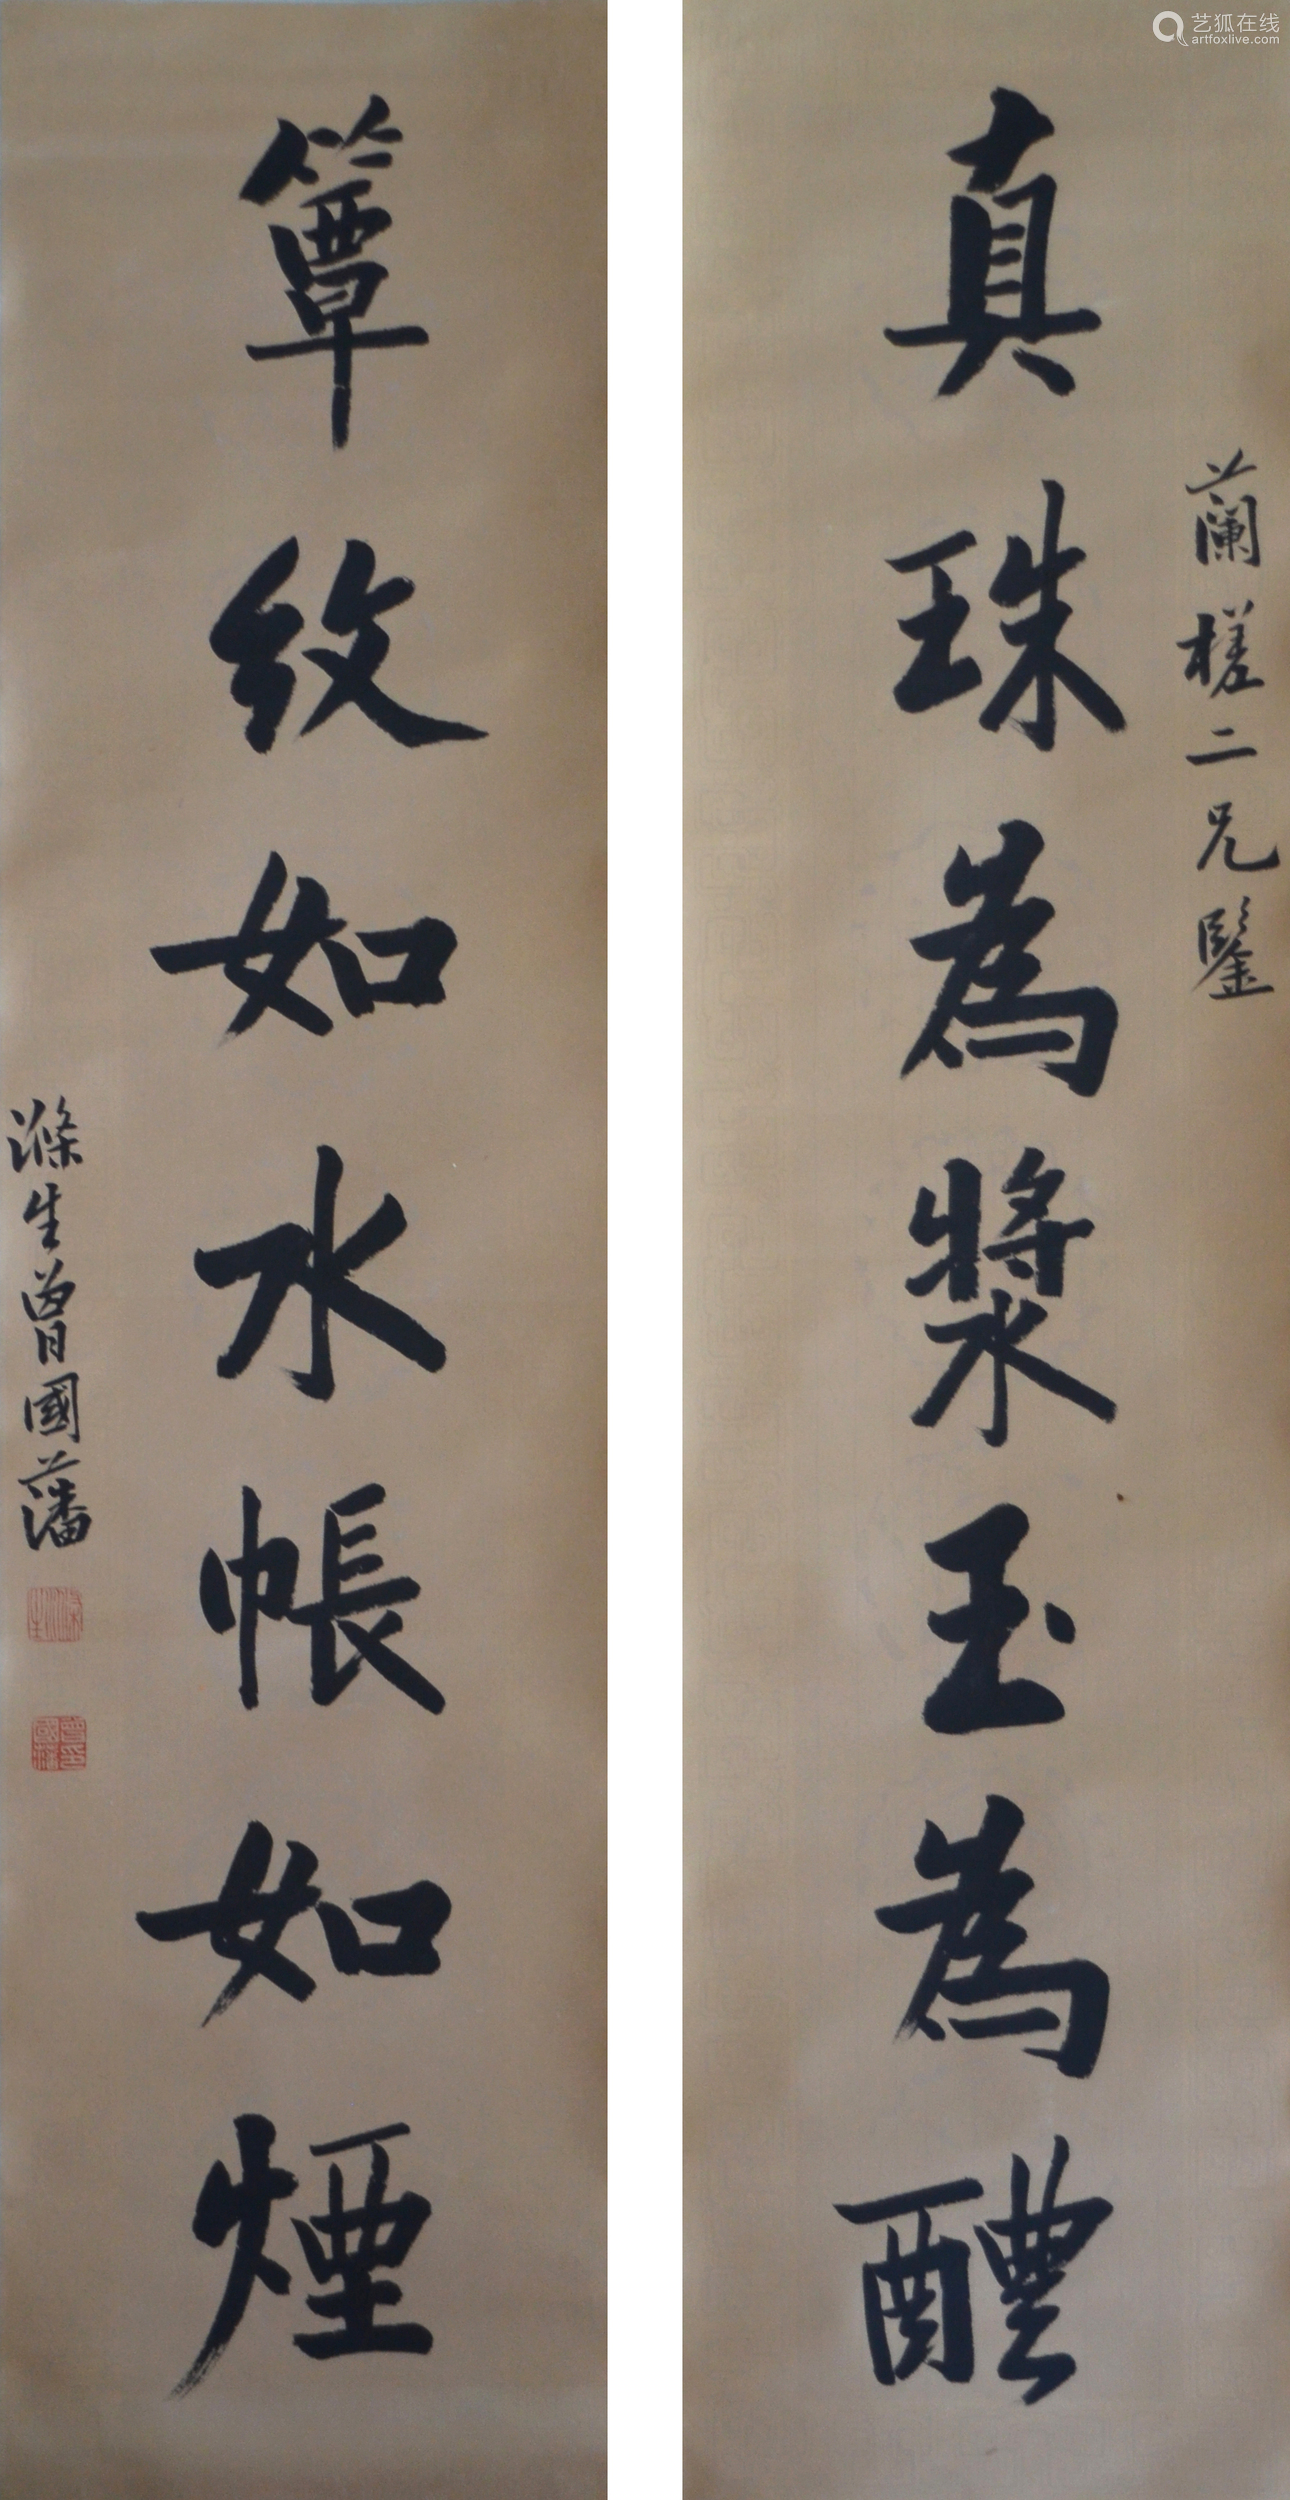 艺狐在线
artfoxlive.com
蘭槎二兄鑒
真珠為漿玉為醴
簟紋如水帳如煙
滌生曾國藩
滌生
曾國藩印